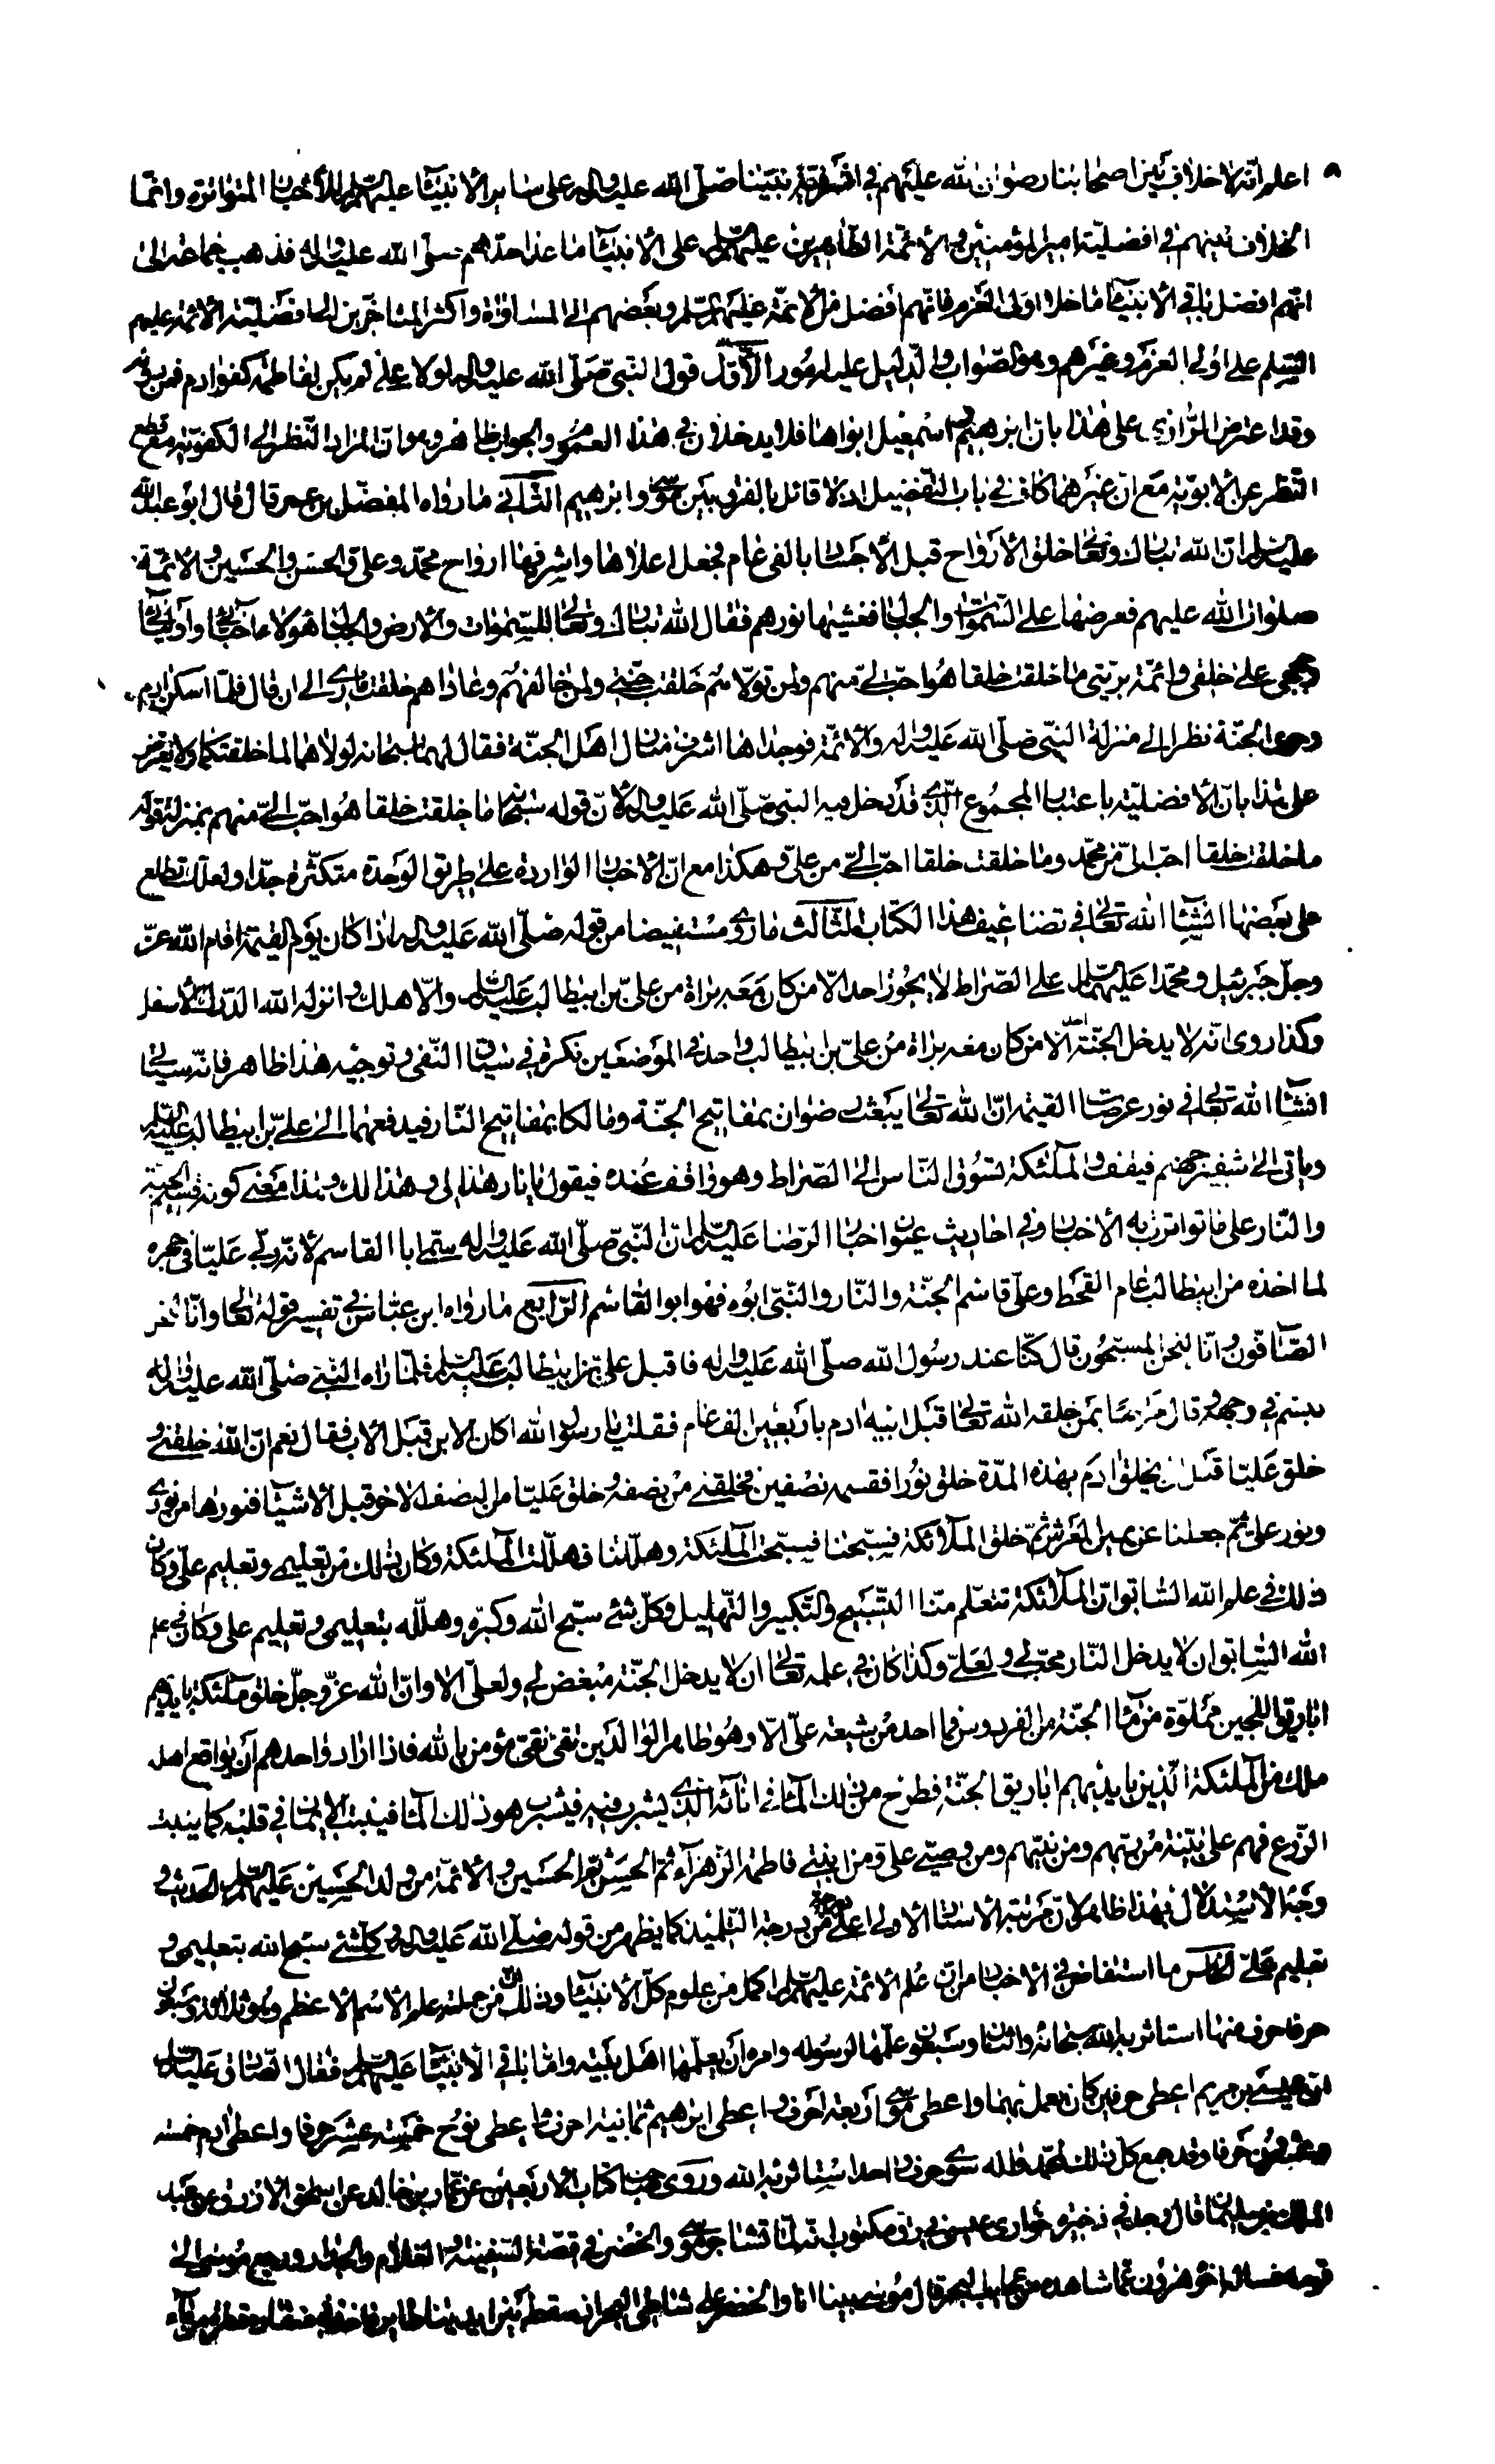 اعلم انه لا خلاف بين اصحابنا رضوان الله عليهم في اشرفية نبينا صلى الله عليه واله على ساير الانبياء عليهم السلم للاخبار المتواترة وانما
الخلاف بينهم في افضلية امير المؤمنين والائمة الطاهرين عليهم السلم على الانبياء ما عدا جدهم صلى الله عليه واله فذهب جماعة الى
انهم افضل باقي الانبياء ما خلا اولى العزم فانهم افضل من الائمة عليهم السلم وبعضهم الى المساواة واكثر المتاخرين الى افضلية الائمة عليهم
السلم على اولي العزم وغيرهم وهو الصواب والدليل عليه امور الاول قول النبي صلى الله عليه واله لولا علي لم يكن لفاطمة كفو ادم فمن دونه
وقد اعترض الرازي على هذا بان ابرهيم واسمعيل ابواها فلا يدخلان في هذا العموم والجواب ظاهر وهو ان المراد النظر الى الكفوية مع قطع
النظر عن الابوية مع ان غيرهما كاف في باب التفضيل اذ لا قائل بالفرق بين موسى وابرهيم الثاني ما رواه المفضل بن عمر قال قال ابو عبد الله
عليه السلم ان الله تبارك وتعالى خلق الارواح قبل الاجساد بالفي عام فجعل اعلاها واشرفها ارواح محمد وعلي والحسن والحسين والائمة
صلوات الله عليهم فعرضها على السموات والارض والجبال فغشيها نورهم فقال الله تبارك وتعالى للسموات والارض والجبال هؤلاء احبائي واوليائي
وحججي على خلقي وائمة بريتي ما خلقت خلقا هو احب الي منهم ولمن تولاهم خلقت جنتي ولمن خالفهم وعاداهم خلقت ناري الى ان قال فلما اسكن ادم
وحوى الجنة نظرا الى منزلة النبي صلى الله عليه واله والائمة فوجداها اشرف منازل اهل الجنة فقال لهما سبحانه لولا هما لما خلقتكما ولا يعترض
على هذا بان الافضلية باعتبار المجموع الذي قد دخل فيه النبي صلى الله عليه واله لان قوله سبحانه ما خلقت خلقا هو احب الي منهم بمنزلة قوله
ما خلقت خلقا احب الي من محمد وما خلقت خلقا احب الي من علي وهكذا مع ان الاخبار الواردة على طريق الوحدة متكثرة جدا ولعلك تطلع
على بعضها انشاء الله تعالى في تضاعيف هذا الكتاب الثالث ما روى مستفيضا من قوله صلى الله عليه واله اذا كان يوم القيمة اقام الله عز
وجل جبرئيل ومحمدا عليهما السلم على الصراط لا يجوز احد الا من كان معه براة من علي بن ابيطالب عليه السلم والا هلك وانزله الله الدرك الاسفل
وكذا روى انه لا يدخل الجنة احد الا من كان معه براة من علي بن ابيطالب واحد في الموضعين نكرة في سياق النفي وتوجيه هذا ظاهر فانه سياتي
انشاء الله تعالى في نور عرصات القيمة ان الله تعالى يبعث رضوان بمفاتيح الجنة ومالكا بمفاتيح النار فيدفعهما الى علي بن ابيطالب عليه السلم
وياتي الى شفير جهنم فيقف والملئكة تسوق الناس الى الصراط وهو واقف عنده فيقول يا نار هذا لي وهذا لك وهذا معنى كونه قسيم الجنة
والنار على ما تواترت به الاخبار وفي احاديث عيون اخبار الرضا عليه السلم ان النبي صلى الله عليه واله سمي ابا القاسم لانه ربى عليا في حجره
لما اخذه من ابيطالب عام القحط وعلي قاسم الجنة والنار والنبي ابوه فهو ابو القاسم الرابع ما رواه ابن عباس في تفسير قوله تعالى وانا لنحن
الصافون وانا لنحن المسبحون قال كنا عند رسول الله صلى الله عليه واله فاقبل علي بن ابيطالب عليه السلم فلما راه النبي صلى الله عليه واله
تبسم في وجهه وقال مرحبا بمن خلقه الله تعالى قبل ابيه ادم باربعين الف عام فقلت يا رسول الله اكان الابن قبل الاب فقال نعم ان الله خلقني و
خلق عليا قبل ان يخلق ادم بهذه المدة خلق نورا فقسمه نصفين فخلقني من نصفه وخلق عليا من النصف الاخر قبل الاشياء فنورها من نوري
ونور علي ثم جعلنا عن يمين العرش ثم خلق الملائكة فسبحنا فسبحت الملئكة وهللنا فهللت الملئكة وكان ذلك من تعليمي وتعليم علي وكان
ذلك في علم الله السابق ان الملائكة تتعلم منا التسبيح والتكبير والتهليل وكل شئ سبح الله وكبره وهلله بتعليمي وتعليم علي وكان في علم
الله السابق ان لا يدخل النار محب لي ولعلي وكذا كان في علمه تعالى ان لا يدخل الجنة مبغض لي ولعلي الا وان الله عز وجل خلق ملئكة بايديهم
اباريق اللجين مملوة من ماء الجنة من الفردوس فما احد من شيعة علي الا وهو طاهر الوالدين تقي نقي مؤمن بالله فاذا اراد واحدهم ان يواقع اهله
ملك من الملئكة الذين بايديهم اباريق الجنة فطرح من ذلك الماء في انائه الذي يشرب فيه فيشرب هو ذلك الماء فينبت الايمان في قلبه كما ينبت
الزرع فهم على بينة من ربهم ومن نبيهم ومن وصيي علي ومن ابنتي فاطمة الزهرآء ثم الحسن ثم الحسين والائمة من ولد الحسين عليهم السلم الحديث و
وجه الاستدلال بهذا ظاهر لان مرتبة الاستاد الاولى اعلى من درجة التلميذ كما يظهر من قوله صلى الله عليه واله وكل شئ سبح الله بتعليمي و
تعليم علي الخامس ما استفاض في الاخبار من ان علم الائمة عليهم السلم اكمل من علوم كل الانبياء وذلك ان من جملته علم الاسم الاعظم وهو ثلاثة وسبعون
حرفا حرف منها استاثر به الله سبحانه واثنان وسبعون علمها لرسوله وامره ان يعلمها اهل بيته واما باقي الانبياء عليهم السلم فقال الصادق عليه السلم
ان عيسى بن مريم اعطى حرفين كان يعمل بهما واعطى موسى اربعة احرف واعطى ابرهيم ثمانية احرف واعطى نوح خمسة عشر حرفا واعطى ادم خمسة
وعشرون حرفا وقد جمع كل ذلك لمحمد واله سوى حرف واحد استاثر به الله وروى صاحب كتاب الاربعين عن عمار بن خالد عن اسحق الازرق عن عبد
الملك بن سليمان قال وجد في ذخيرة حواري عيسى في رق مكتوب انه لما تشاجر موسى والخضر في قصة السفينة والغلام والجدار ورجع موسى الى
قومه فساله اخوه هرون عما شاهده من عجايب البحر قال موسى بينا انا والخضر على شاطئ البحر اذ سقط بين ايدينا طاير فاخذ في منقاره قطرة من ماء